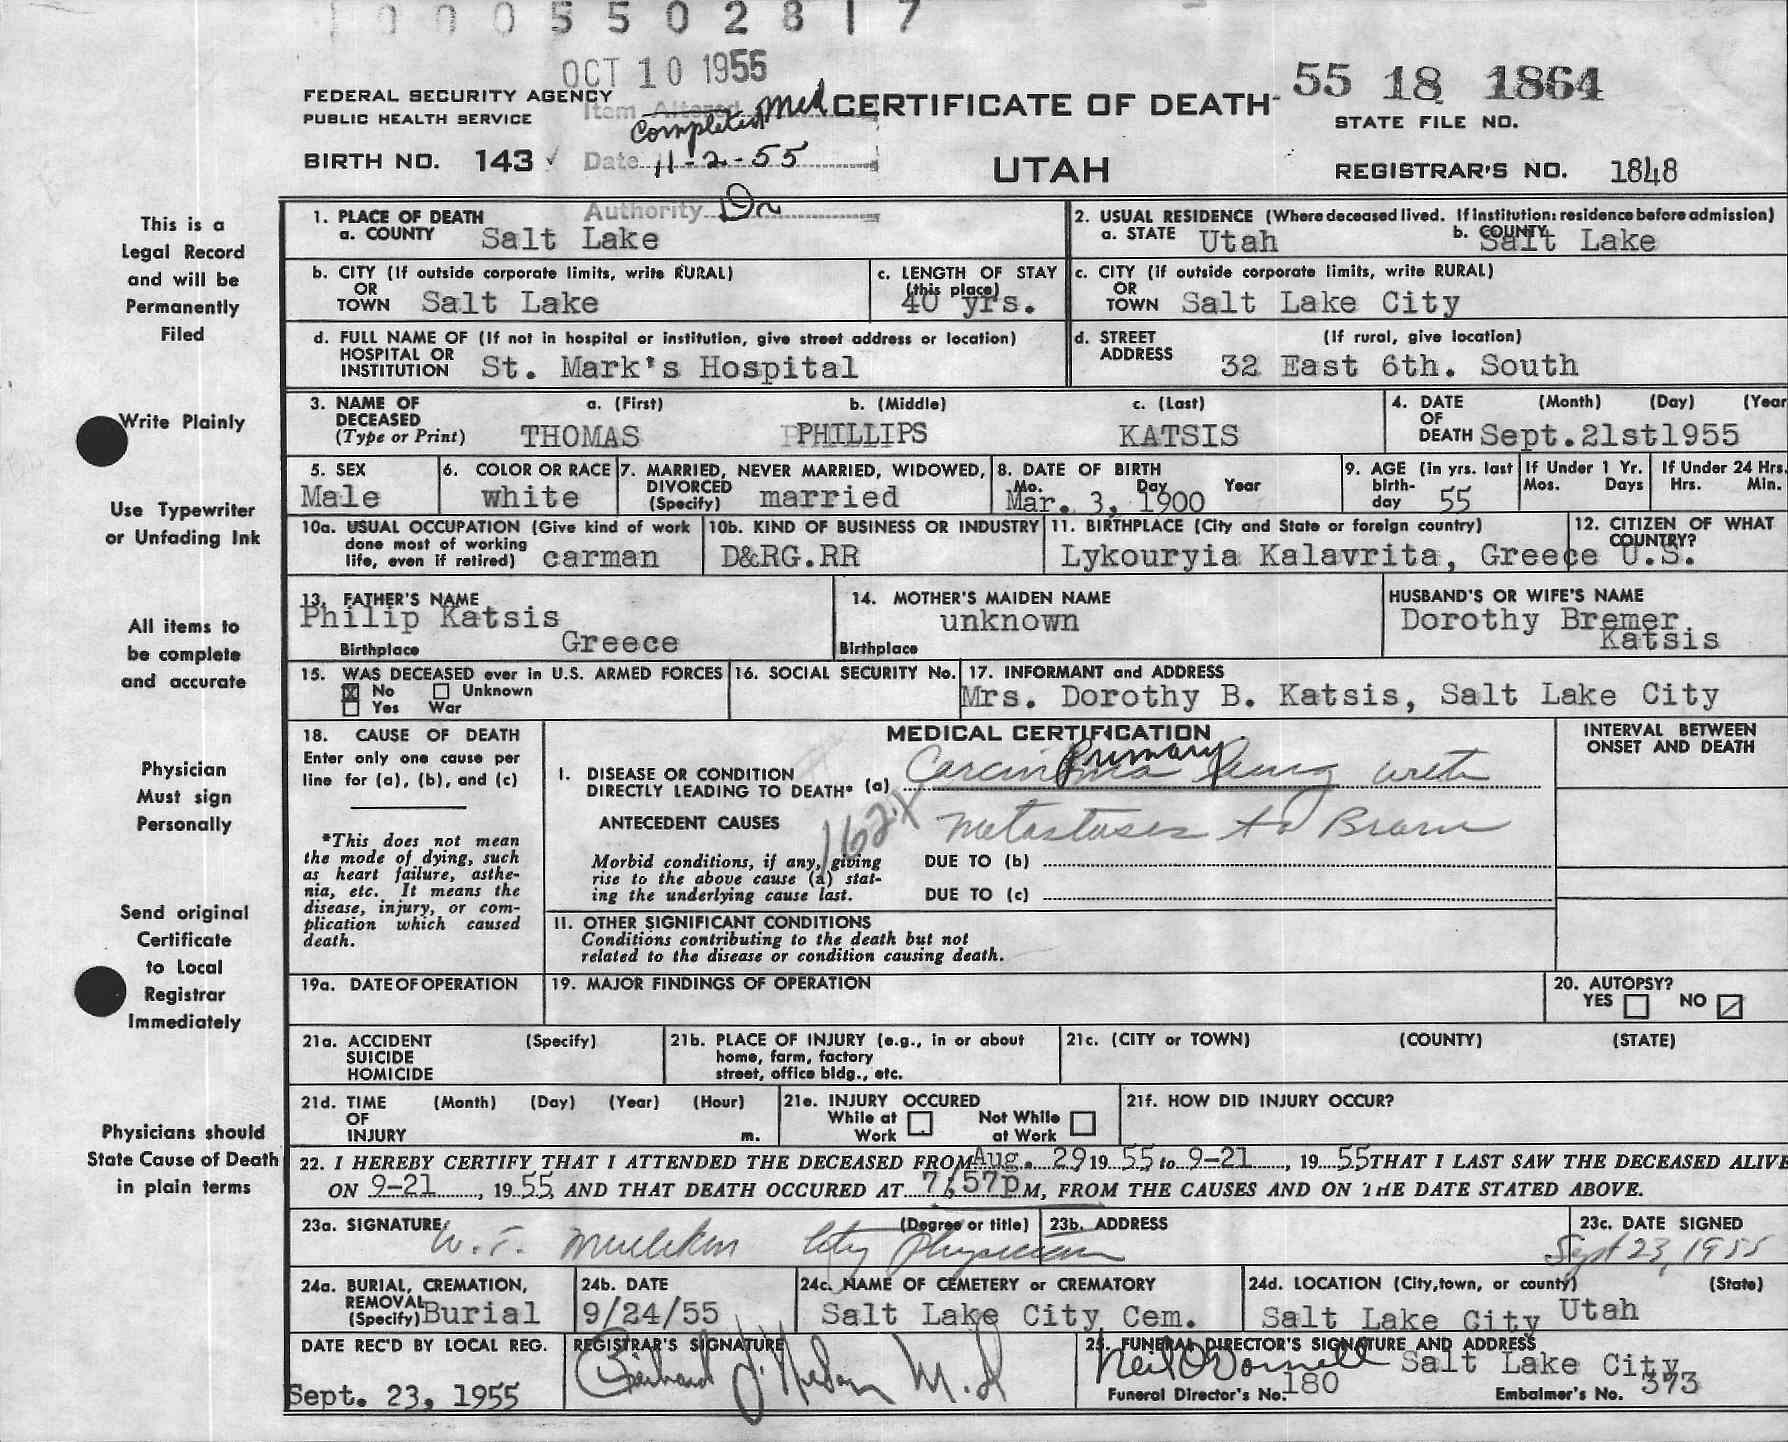 1 0 0 0 5 5 0 2 8 1 7
OCT 10 1955
55 18 1864
FEDERAL SECURITY AGENCY
PUBLIC HEALTH SERVICE
Item Altered Med
Completed
CERTIFICATE OF DEATH
STATE FILE NO.
BIRTH NO. 143
Date 11-2-55
UTAH
REGISTRAR'S NO. 1848
Authority Dr
This is a
Legal Record
and will be
Permanently
Filed
Write Plainly
Use Typewriter
or Unfading Ink
All items to
be complete
and accurate
Physician
Must sign
Personally
Send original
Certificate
to Local
Registrar
Immediately
Physicians should
State Cause of Death
in plain terms
1. PLACE OF DEATH
a. COUNTY Salt Lake
2. USUAL RESIDENCE (Where deceased lived. If institution: residence before admission)
a. STATE Utah b. COUNTY Salt Lake
b. CITY (If outside corporate limits, write RURAL)
OR
TOWN Salt Lake
c. LENGTH OF STAY
(this place)
40 yrs.
c. CITY (If outside corporate limits, write RURAL)
OR
TOWN Salt Lake City
d. FULL NAME OF (If not in hospital or institution, give street address or location)
HOSPITAL OR
INSTITUTION St. Mark's Hospital
d. STREET (If rural, give location)
ADDRESS 32 East 6th. South
3. NAME OF a. (First) b. (Middle) c. (Last)
DECEASED
(Type or Print) THOMAS PHILLIPS KATSIS
4. DATE (Month) (Day) (Year
OF
DEATH Sept.21st1955
5. SEX
Male
6. COLOR OR RACE
white
7. MARRIED, NEVER MARRIED, WIDOWED,
DIVORCED
(Specify) married
8. DATE OF BIRTH
Mo. Day Year
Mar. 3, 1900
9. AGE (in yrs. last
birth-
day 55
If Under 1 Yr.
Mos. Days
If Under 24 Hrs.
Hrs. Min.
10a. USUAL OCCUPATION (Give kind of work
done most of working
life, even if retired) carman
10b. KIND OF BUSINESS OR INDUSTRY
D&RG.RR
11. BIRTHPLACE (City and State or foreign country)
Lykouryia Kalavrita, Greece
12. CITIZEN OF WHAT
COUNTRY?
U.S.
13. FATHER'S NAME
Philip Katsis
Birthplace Greece
14. MOTHER'S MAIDEN NAME
unknown
Birthplace
HUSBAND'S OR WIFE'S NAME
Dorothy Bremer
Katsis
15. WAS DECEASED ever in U.S. ARMED FORCES
No Unknown
Yes War
16. SOCIAL SECURITY No.
17. INFORMANT and ADDRESS
Mrs. Dorothy B. Katsis, Salt Lake City
18. CAUSE OF DEATH
Enter only one cause per
line for (a), (b), and (c)
*This does not mean
the mode of dying, such
as heart failure, asthe-
nia, etc. It means the
disease, injury, or com-
plication which caused
death.
MEDICAL CERTIFICATION
INTERVAL BETWEEN
ONSET AND DEATH
Primary
I. DISEASE OR CONDITION
DIRECTLY LEADING TO DEATH* (a) Carcinoma Lung with
ANTECEDENT CAUSES 162.1 Metastases to Brain
Morbid conditions, if any, giving
rise to the above cause (a) stat-
ing the underlying cause last.
DUE TO (b)
DUE TO (c)
II. OTHER SIGNIFICANT CONDITIONS
Conditions contributing to the death but not
related to the disease or condition causing death.
19a. DATE OF OPERATION
19. MAJOR FINDINGS OF OPERATION
20. AUTOPSY?
YES NO
21a. ACCIDENT (Specify)
SUICIDE
HOMICIDE
21b. PLACE OF INJURY (e.g., in or about
home, farm, factory
street, office bldg., etc.
21c. (CITY or TOWN) (COUNTY) (STATE)
21d. TIME (Month) (Day) (Year) (Hour)
OF
INJURY m.
21e. INJURY OCCURED
While at Not While
Work at Work
21f. HOW DID INJURY OCCUR?
22. I HEREBY CERTIFY THAT I ATTENDED THE DECEASED FROM Aug. 29 19 55 to 9-21, 19 55 THAT I LAST SAW THE DECEASED ALIVE
ON 9-21, 19 55, AND THAT DEATH OCCURED AT 7:57p M, FROM THE CAUSES AND ON THE DATE STATED ABOVE.
23a. SIGNATURE (Degree or title)
W. T. City Physician
23b. ADDRESS
23c. DATE SIGNED
Sept 23, 1955
24a. BURIAL, CREMATION,
REMOVAL
(Specify) Burial
24b. DATE
9/24/55
24c. NAME OF CEMETERY or CREMATORY
Salt Lake City Cem.
24d. LOCATION (City, town, or county) (State)
Salt Lake City Utah
DATE REC'D BY LOCAL REG.
Sept. 23, 1955
REGISTRAR'S SIGNATURE
M.D
25. FUNERAL DIRECTOR'S SIGNATURE AND ADDRESS
Neil O'Donnell Salt Lake City
Funeral Director's No. 180 Embalmer's No. 373